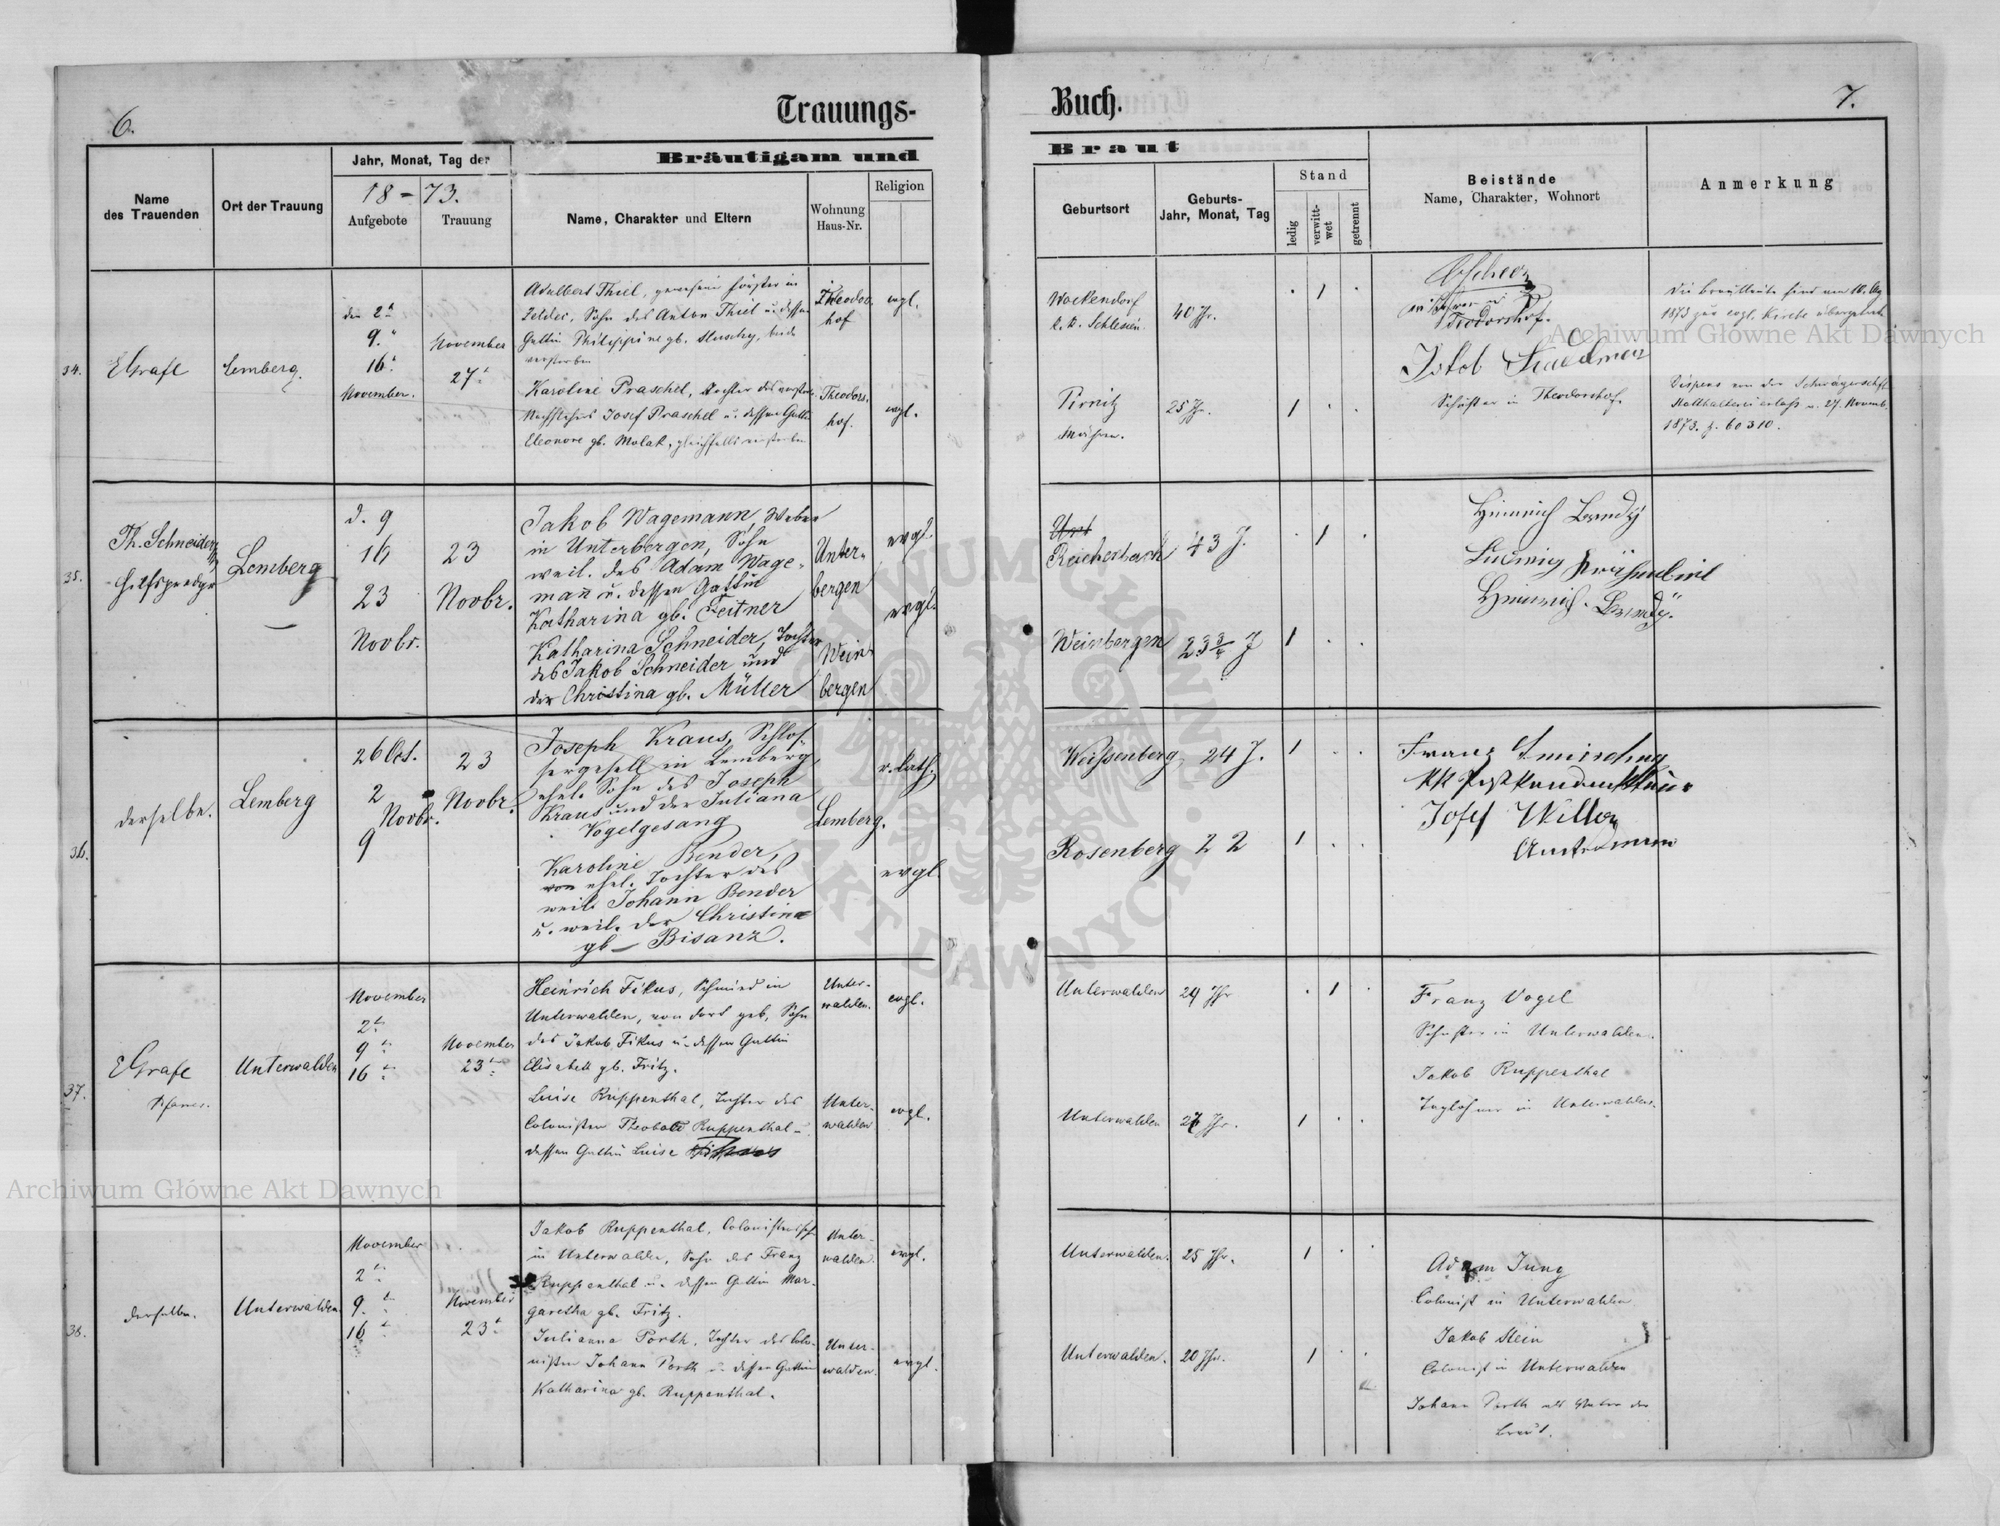 6.
Trauungs-
Name
des Trauenden
Ort der Trauung
Jahr, Monat, Tag der
18-73.
Aufgebote
Trauung
Bräutigam und
Name, Charakter und Eltern
Wohnung
Haus-Nr.
Religion
34.
EGrafe
Lemberg.
den 2t
9.
16.
November.
November
27
Adalbert Thiel, gewesener Förster in
Sohn des Anton Thiel u. dessen
Gattin Philippine gb. beide
verstorben
Theodors
hof
evgl.
Karoline Praschel, Tochter des verstorb.
Josef Praschel u. dessen Gattin
Eleonore gb. Molak, gleichfalls verstorben
Theodors-
hof.
evgl.
35.
Th. Schneider,
Hilfsprediger
Lemberg
d. 9
16
23
Novbr.
23
Novbr.
Jakob Wagemann, Weber
in Unterbergen, Sohn
weil. des Adam Wage-
mann u. dessen Gattin
Katharina gb. Zeitner
Unter-
bergen
evgl.
Katharina Schneider, Tochter
des Jakob Schneider und
der Christina gb. Müller
Wein
bergen
evgl.
36.
derselbe.
Lemberg
26 Oct.
2
Novbr.
9
23
Novbr.
Joseph Kraus, Schlos-
sergesell in Lemberg,
ehel. Sohn des Joseph
Kraus und der Juliana
Vogelgesang
Lemberg.
r. kath.
Karoline Bender,
ehel. Tochter des
weil. Johann Bender
u. weil. der Christina
gb. Bisanz.
evgl.
37.
EGrafe
Pfarrer.
Unterwalden
November
2t
9t
16t
November
23t
Heinrich Fikus, Schmied in
Unterwalden, von dort geb, Sohn
des Jakob Fikus u. dessen Gattin
Elisabeth gb. Fritz.
Unter-
walden.
evgl.
Luise Ruppenthal, Tochter des
Colonisten Theobald Ruppenthal u.
dessen Gattin Luise
Unter-
walden
evgl.
38.
derselbe.
Unterwalden.
November
2t
9.t
16t
November
23t
Jakob Ruppenthal, Colonistenssohn
in Unterwalden, Sohn des Franz
Ruppenthal u. dessen Gattin Mar-
garetha gb. Fritz.
Unter-
walden.
evgl.
Julianna Porth, Tochter des Colo-
nisten Johann Porth u. dessen Gattin
Katharina gb. Ruppenthal.
Unter-
walden.
evgl.
Buch.
7.
Braut
Geburtsort
Geburts-
Jahr, Monat, Tag
Stand
ledig
verwitt-
wet
getrennt
Beistände
Name, Charakter, Wohnort
Anmerkung
Wockendorf
k. k. Schlesien.
40 Jr.
1
Theodorshof.
Die Brautleute sind am 10. Aug
1873 zur evgl. Kirche übergetreten
Pirnitz
Mähren.
25 Jr.
1
Jakob
Schuster in Theodorshof.
Dispens von der Schwägerschaft
Statthaltereierlass v. 27. Novemb.
1873. z. 60310.
Reichenbach
43 J.
1
Heinrich
Ludwig
Heinrich
Weinbergen
23 3/4 J
1
Weissenberg
24 J.
1
Franz
Josef Willer
Rosenberg
22
1
Unterwalden
24 Jhr
1
Franz Vogel
Schuster in Unterwalden.
Jakob Ruppenthal
Taglöhner in Unterwalden.
Unterwalden
Jr.
1
Unterwalden.
25 Jhr.
1
Adam Jung
Colonist in Unterwalden
Jakob Stein
Colonist in Unterwalden
Johann Porth als Vater der
Braut.
Unterwalden.
20 Jhr.
1
Archiwum Główne Akt Dawnych
Archiwum Główne Akt Dawnych
ARCHIWUM GŁÓWNE AKT DAWNYCH